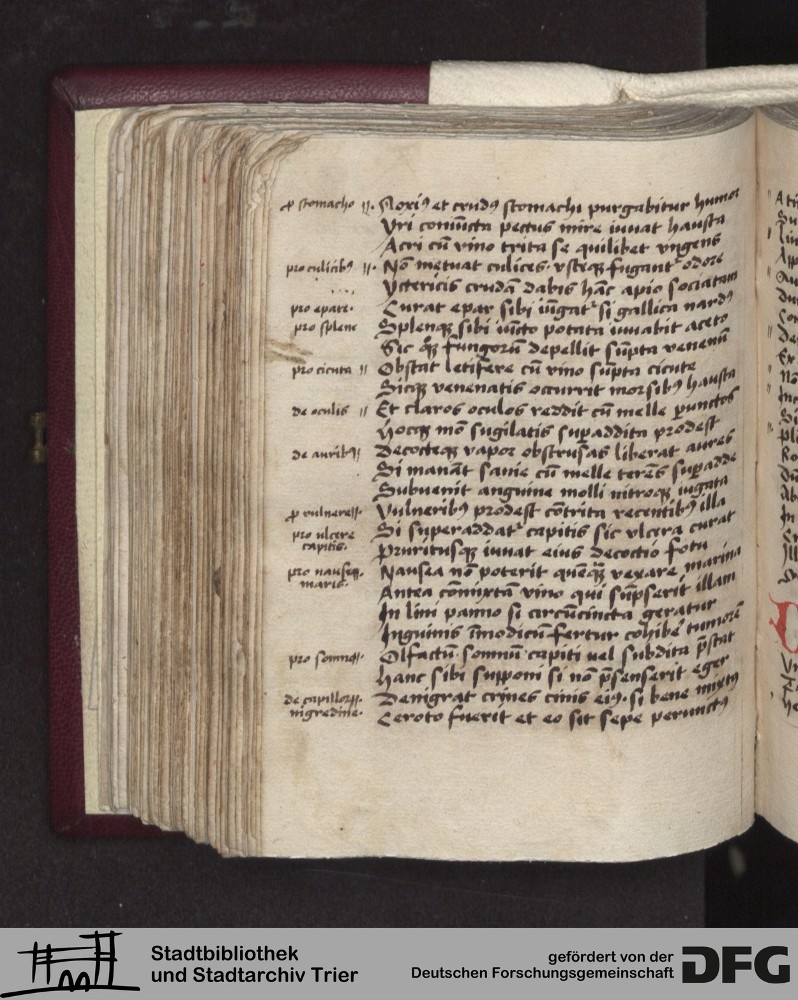 ꝓ stomacho ⸗. Noxiꝰ et crudꝰ stomachi purgabitur humor
Vri coniūcta pectus mire iuuat hausta
Acri cū vino trita se quilibet vngens
pro culicibꝰ ⸗. Nō metuat culices vstaqꝫ fugant᷑ odore
Yctericis crudā dabis hāc apio sociatam
pro epate. Curat epar sibi iūgat᷑ si gallica nardꝰ
pro splene Splenqꝫ sibi iūcto potata iuuabit aceto
Sic qꝫ fungorū depellit sūpta venenū
pro cicuta ⸗ Obstat letifere cū vino sūpta cicute
Sicqꝫ venenatis occurrit morsibꝰ hausta
de oculis ⸗ Et claros oculos reddit cū melle ꝑunctos
hocqꝫ mō sugilatis suꝑaddita prodest
de auribꝰ⸗ Decocteqꝫ vapor obstrusas liberat aures
Si manāt sanie cū melle terēs suꝑadde
Subuenit anguine molli nitroqꝫ iugata
ꝓ vulnere⸗. Vulneribꝰ prodest cōtrita recentibꝰ illa
pro ulcere Si superaddat᷑ capitis sic vlcera curat
capitis. Pruritusqꝫ iuuat eius decoctio fotu
pro nausea Nausea nō poterit quēqꝫ vexare marina
maris. Antea cōmixtā vino qui sūpserit illam
In lini panno si circūcincta geratur
Inguinis īmodicū fertur cohibe᷑ tumorē
pro somno⸗. Olfactū somnū capiti uel subdita p̄stat
hanc sibi supponi si nō p̄senserit eger
de capillorꝫ⸗. Denigrat crines cinis eiꝰ. si bene mixtꝰ
nigredine. Ceroto fuerit et eo sit sepe perunctꝰ
Stadtbibliothek
und Stadtarchiv Trier
gefördert von der
Deutschen Forschungsgemeinschaft
DFG